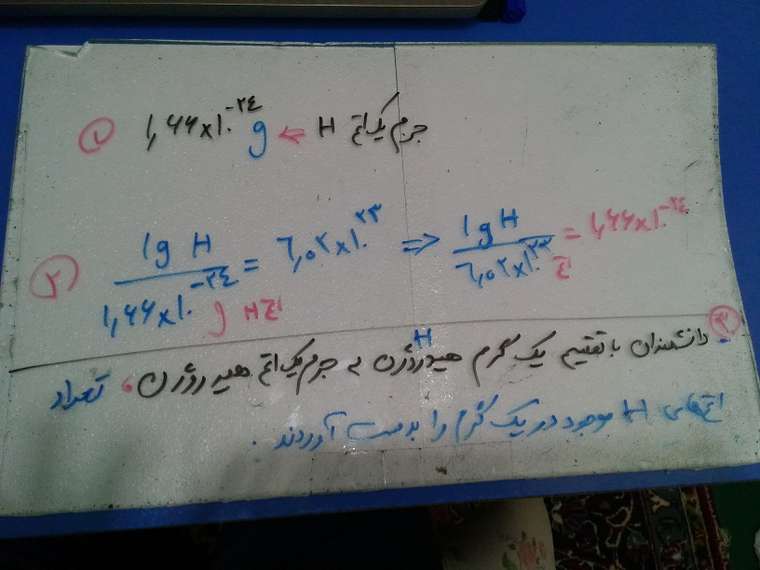 ۱ جرم یک اتم H ← ۱٫۶۶×۱۰^-۲۴ g
۲ ۱g H / ۱٫۶۶×۱۰^-۲۴ g اتم H = ۶٫۰۲×۱۰^۲۳ ⇒ ۱g H / ۶٫۰۲×۱۰^۲۳ اتم = ۱٫۶۶×۱۰^-۲۴
۳ دانشمندان با تقسیم یک گرم هیدروژن H بر جرم یک اتم هیدروژن، تعداد
اتم‌های H موجود در یک گرم را بدست آوردند.